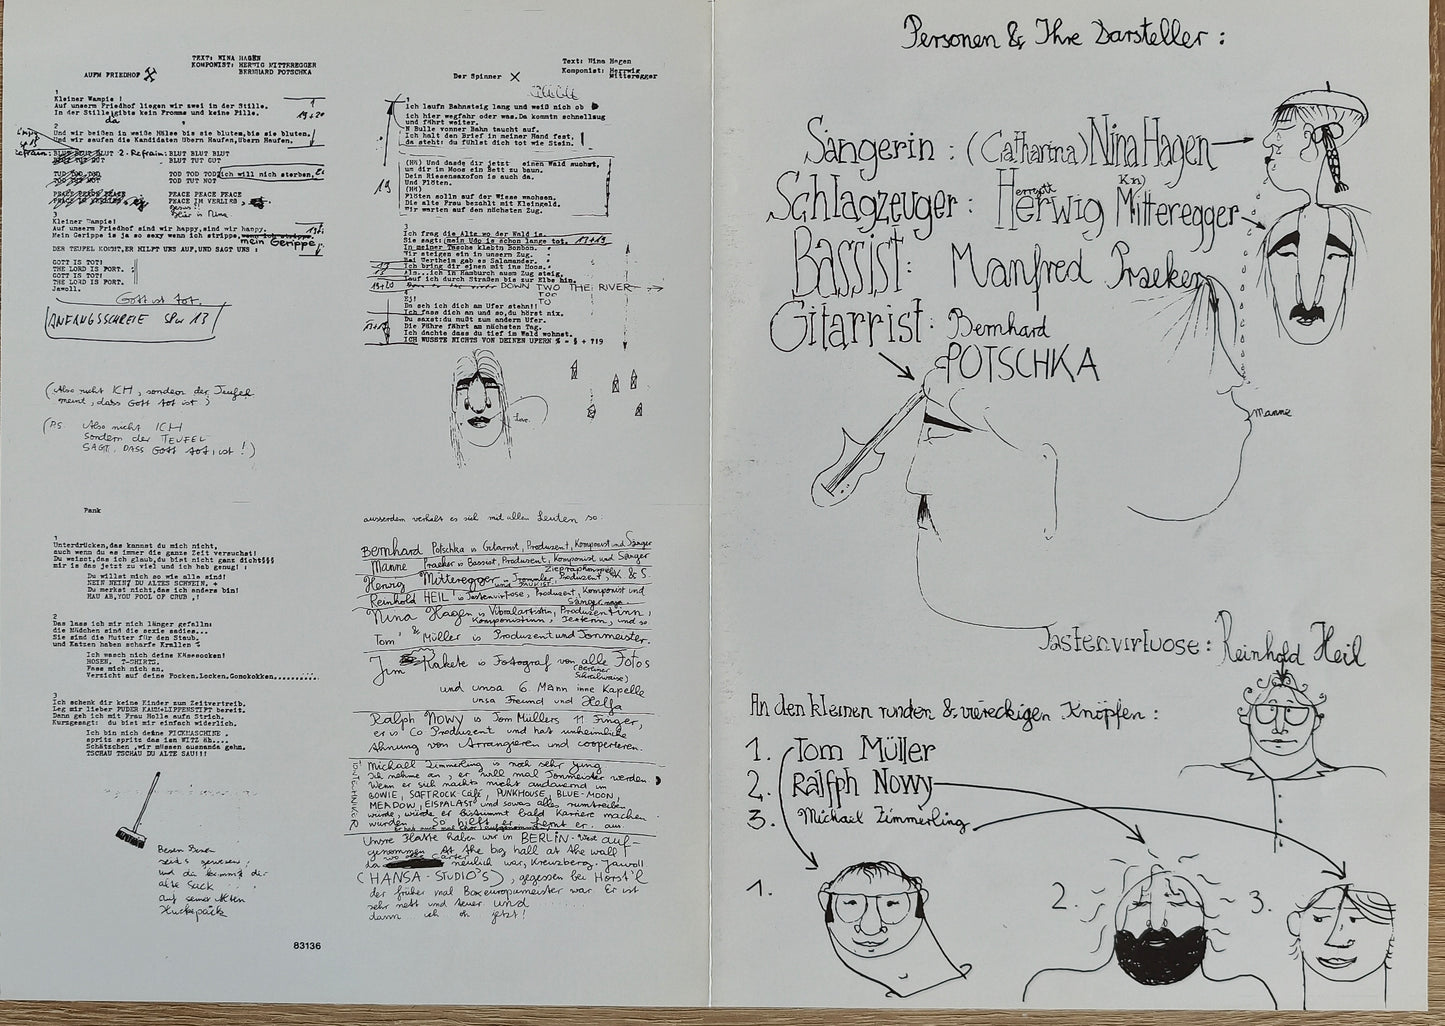 TEXT: NINA HAGEN
KOMPONIST: HERWIG MITTEREGGER
BERNHARD POTSCHKA
AUFM FRIEDHOF
1
Kleiner Wampie !
Auf unserm Friedhof liegen wir zwei in der Stille.
In der Stille gibts kein Promms und keine Pille.
da
1
19+20
2
Und wir beißen in weiße Hälse bis sie bluten,bis sie bluten.
Und wir saufen die Kandidaten Übern Haufen,Übern Haufen.
Refrain: BLUT BLUT BLUT 2. Refrain: BLUT BLUT BLUT
BLUT TUT GUT
TOD TOD TOD TOD TOD TOD ich will nich sterben,
TOD TUT NOT
PEACE PEACE PEACE PEACE PEACE PEACE
PEACE IM VERLIES
hier is Nina
3
Kleiner Wampie!
Auf unserm Friedhof sind wir happy,sind wir happy.
Mein Gerippe is ja so sexy wenn ich strippe,
mein Gerippe
DER TEUFEL KOMMT,ER HILFT UNS AUF,UND SAGT UNS :
GOTT IS TOT!
THE LORD IS FORT.
GOTT IS TOT!
THE LORD IS FORT.
Jawoll.
Gott is tot.
ANFANGSSCHREIE SPur 13
(Also nicht ICH, sondern der Teufel
meint, dass Gott tot ist)
(P.S. Also nicht ICH
sondern der TEUFEL
SAGT, DASS Gott tot, ist!)
Text: Nina Hagen
Komponist: Herwig
Mitteregger
Der Spinner
1
Ich laufn Bahnsteig lang und weiß nich ob
ich hier wegfahr oder was.Da kommtn schnellzug
und fährt weiter.
N Bulle vonner Bahn taucht auf.
Ich halt den Brief in meiner Hand fest,
da steht: du fühlst dich tot wie Stein.
(Hi) Und dasde dir jetzt einen Wald suchst,
un dir im Moos ein Bett zu baun.
Dein Riesensaxofon is auch da.
Und Flöten.
(Hi)
Flöten solln auf der Wiese wachsen.
Die alte Frau bezahlt mit Kleingeld.
Wir warten auf den nächsten Zug.
19
3
Ich frag die Alte wo der Wald is.
Sie sagt: mein Udo is schon lange tot. 17+19
In meiner Tasche klebtn Bonbon.
Wir steigen ein in unsern Zug.
Bei Wertheim gab es Salamander.
Ich bring dir einen mit ins Moos.
In...ich in Hamburch ausm Zug steig,
Lauf ich durch Straßen bis zur Elbe hin.
19+20
DOWN TWO THE RIVER
TOO
TO
4
Ej!
Da seh ich dich am Ufer stehn!!
Ich fass dich an und so,du hörst nix.
Du saxst:du mußt zum andern Ufer.
Die Fähre fährt am nächsten Tag.
Ich dachte dass du tief im Wald wohnst.
ICH WUSSTE NICHTS VON DEINEN UFERN % = § + ?!9
Love.
Pank
1
Unterdrücken,das kannst du mich nicht,
auch wenn du es immer die ganze Zeit versuchst!
Du weisst,das ich glaub,du bist nicht ganz dicht§§§
mir is das jetzt zu viel und ich hab genug! :
Du willst mich so wie alle sind!
NEIN NEIN? DU ALTES SCHWEIN, *
Du merkst nicht,das ich anders bin!
HAU AB,YOU FOOL OF CRUB ,!
2
Das lass ich mir nich länger gefalln:
die Mädchen sind die sexie sadies...
Sie sind die Mutter für den Staub,
und Katzen haben scharfe Kralln
Ich wasch nich deine Käsesocken!
HOSEN, T-SHIRTS,
Fass mich nich an.
Verzicht auf deine Pocken.Locken.Gonokokken..........
3
Ich schenk dir keine Kinder zum Zeitvertreib.
Leg mir lieber PUDER KAMM+LIPPENSTIFT bereit.
Dann geh ich mit Frau Holle aufn Strich.
Kurzgesagt: du bist mir einfach widerlich.
Ich bin nich deine FICKMASCHINE ,
spritz spritz das isn WITZ äh....
Schätzchen ,wir müssen ausnanda gehn.
TSCHAU TSCHAU DU ALTE SAU!!!
Besen Besen
seids gewesen!
und da kommt dir
alte Sack
auf seiner Alten
Huckepack
83136
ausserdem verhält es sich mit allen Leuten so:
Bernhard Potschka is Gitarrist, Produzent, Komponist und Sänger
Manne Praeker is Bassist, Produzent, Komponist und Sänger
Herwig Mitteregger is Trommler, Produzent, K & S.
Reinhold HEIL is Tastenvirtuose, Produzent, Komponist und
Sänger
Nina Hagen is Vibralartistin, Produzentinn,
Komponistinn, Texterin, und so
Tom Müller is Produzent und Tonmeister.
Jim Rakete is Fotograf von alle Fotos
(Berliner
Schreibweise)
und unsa 6. Mann inne Kapelle
unsa Freund und Helfa
Ralph Nowy is Tom Müllers 11. Finger,
er is Co Produzent und hat unheimliche
Ahnung von Arrangieren und cooperieren.
Michael Zimmerling is noch sehr jung
Ich nehme an, er will mal Tonmeister werden.
Wenn er sich nachts nicht andauernd im
BOWIE, SOFTROCK-Café, PUNKHOUSE, BLUE-MOON,
MEADOW, EISPALAST und sowas alles rumtreiben
würde, würde er bestimmt bald Karriere machen.
würde. So hilft er. Lernt er. aus.
Unsre Platte haben wir in BERLIN-West auf-
genommen. At the big hall at the wall
wo neulich war, Kreuzberg. Jawoll
(HANSA-STUDIO'S), gegessen bei Horst'l
der früher mal Boxeuropameister war. Er ist
sehr nett und teuer und
dann ich oh jetzt!
Personen & Ihre Darsteller :
Sängerin : (Catharina) Nina Hagen
Schlagzeuger : Herwig Mitteregger
Bassist : Manfred Praeker
Gitarrist : Bernhard
POTSCHKA
Manne
Tastenvirtuose : Reinhold Heil
An den kleinen runden & viereckigen Knöpfen :
1. Tom Müller
2. Ralfph Nowy
3. Michael Zimmerling
1.
2.
3.